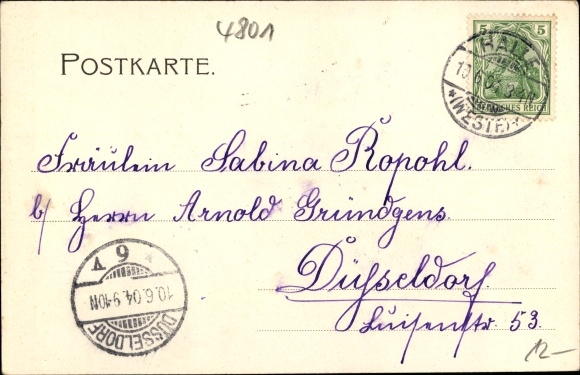 4801
POSTKARTE.
5 5
HALLE
10.6.04
(WESTF.)
DEUTSCHES REICH
Fräulein Sabina Ropohl.
b/ Herrn Arnold Gründgens
Düsseldorf.
Luisenstr. 53.
DÜSSELDORF
10.6.04.9-10N
6 Y
12-